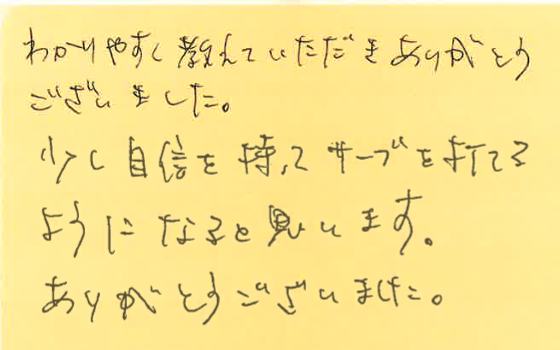 わかりやすく教えていただきありがとう
ございました。
少し自信を持ってサーブを打てる
ようになると思います。
ありがとうございました。